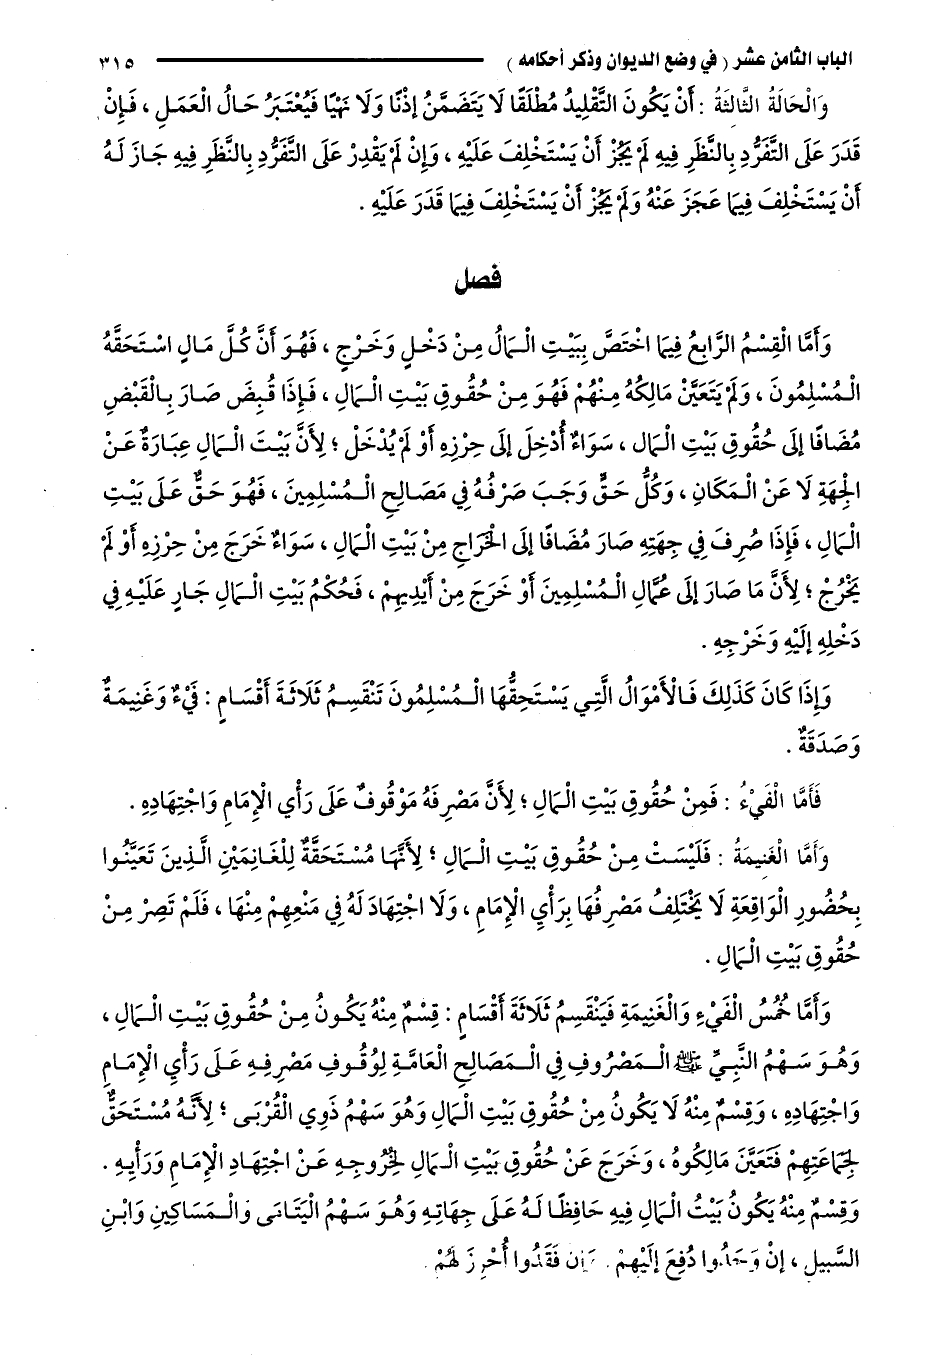 الباب الثامن عشر ( في وضع الديوان وذكر أحكامه ) ٣١٥
وَالْحَالَةُ الثَّالثَةُ : أَنْ يَكُونَ التَّقْلِيدُ مُطْلَقًا لَا يَتَضَمَّنُ إِذْنًا وَلَا نَهْيًا فَيُعْتَبَرُ حَالُ الْعَمَلِ ، فَإِنْ
قَدَرَ عَلَى التَّفَرُّدِ بِالنَّظَرِ فِيهِ لَمْ يَجُزْ أَنْ يَسْتَخْلِفَ عَلَيْهِ ، وَإِنْ لَمْ يَقْدِرْ عَلَى التَّفَرُّدِ بِالنَّظَرِ فِيهِ جَازَ لَهُ
أَنْ يَسْتَخْلِفَ فِيمَا عَجَزَ عَنْهُ وَلَمْ يَجُزْ أَنْ يَسْتَخْلِفَ فِيمَا قَدَرَ عَلَيْهِ .
فصل
وَأَمَّا الْقِسْمُ الرَّابِعُ فِيمَا اخْتَصَّ بِبَيْتِ الْمَالُ مِنْ دَخْلٍ وَخَرْجٍ ، فَهُوَ أَنَّ كُلَّ مَالٍ اسْتَحَقَّهُ
الْمُسْلِمُونَ ، وَلَمْ يَتَعَيَّنْ مَالِكُهُ مِنْهُمْ فَهُوَ مِنْ حُقُوقِ بَيْتِ الْمَالِ ، فَإِذَا قُبِضَ صَارَ بِالْقَبْضِ
مُضَافًا إِلَى حُقُوقِ بَيْتِ الْمَالِ ، سَوَاءٌ أُدْخِلَ إِلَى حِرْزِهِ أَوْ لَمْ يُدْخَلْ ؛ لِأَنَّ بَيْتَ الْمَالِ عِبَارَةٌ عَنْ
الْجِهَةِ لَا عَنْ الْمَكَانِ ، وَكُلُّ حَقٍّ وَجَبَ صَرْفُهُ فِي مَصَالِحِ الْمُسْلِمِينَ ، فَهُوَ حَقٌّ عَلَى بَيْتِ
الْمَالِ ، فَإِذَا صُرِفَ فِي جِهَتِهِ صَارَ مُضَافًا إِلَى الْخَرَاجِ مِنْ بَيْتِ الْمَالِ ، سَوَاءٌ خَرَجَ مِنْ حِرْزِهِ أَوْ لَمْ
يَخْرُجْ ؛ لِأَنَّ مَا صَارَ إِلَى عُمَّالِ الْمُسْلِمِينَ أَوْ خَرَجَ مِنْ أَيْدِيهِمْ ، فَحُكْمُ بَيْتِ الْمَالِ جَارٍ عَلَيْهِ فِي
دَخْلِهِ إِلَيْهِ وَخَرْجِهِ .
وَإِذَا كَانَ كَذَلِكَ فَالْأَمْوَالُ الَّتِي يَسْتَحِقُّهَا الْمُسْلِمُونَ تَنْقَسِمُ ثَلَاثَةَ أَقْسَامٍ : فَيْءٌ وَغَنِيمَةٌ
وَصَدَقَةٌ .
فَأَمَّا الْفَيْءُ : فَمِنْ حُقُوقِ بَيْتِ الْمَالِ ؛ لِأَنَّ مَصْرِفَهُ مَوْقُوفٌ عَلَى رَأْيِ الْإِمَامِ وَاجْتِهَادِهِ .
وَأَمَّا الْغَنِيمَةُ : فَلَيْسَتْ مِنْ حُقُوقِ بَيْتِ الْمَالِ ؛ لِأَنَّهَا مُسْتَحَقَّةٌ لِلْغَانِمَيْنِ الَّذِينَ تَعَيَّنُوا
بِحُضُورِ الْوَاقِعَةِ لَا يَخْتَلِفُ مَصْرِفُهَا بِرَأْيِ الْإِمَامِ ، وَلَا اجْتِهَادَ لَهُ فِي مَنْعِهِمْ مِنْهَا ، فَلَمْ تَصِرْ مِنْ
حُقُوقِ بَيْتِ الْمَالِ .
وَأَمَّا خُمُسُ الْفَيْءِ وَالْغَنِيمَةِ فَيَنْقَسِمُ ثَلَاثَةَ أَقْسَامٍ : قِسْمٌ مِنْهُ يَكُونُ مِنْ حُقُوقِ بَيْتِ الْمَالِ ،
وَهُوَ سَهْمُ النَّبِيِّ ﷺ الْمَصْرُوفِ فِي الْمَصَالِحِ الْعَامَّةِ لِوُقُوفِ مَصْرِفِهِ عَلَى رَأْيِ الْإِمَامِ
وَاجْتِهَادِهِ ، وَقِسْمٌ مِنْهُ لَا يَكُونُ مِنْ حُقُوقِ بَيْتِ الْمَالِ وَهُوَ سَهْمُ ذَوِي الْقُرْبَى ؛ لِأَنَّهُ مُسْتَحَقٌّ
لِجَمَاعَتِهِمْ فَتَعَيَّنَ مَالِكُوهُ ، وَخَرَجَ عَنْ حُقُوقِ بَيْتِ الْمَالِ لِخُرُوجِهِ عَنْ اجْتِهَادِ الْإِمَامِ وَرَأْيِهِ .
وَقِسْمٌ مِنْهُ يَكُونُ بَيْتُ الْمَالِ فِيهِ حَافِظًا لَهُ عَلَى جِهَاتِهِ وَهُوَ سَهْمُ الْيَتَامَى وَالْمَسَاكِينِ وَابْنِ
السَّبِيلِ ، إِنْ وَجَدُوا دُفِعَ إِلَيْهِمْ . وَإِن فَقَدُوا أُحْرِزَ لَهُمْ .